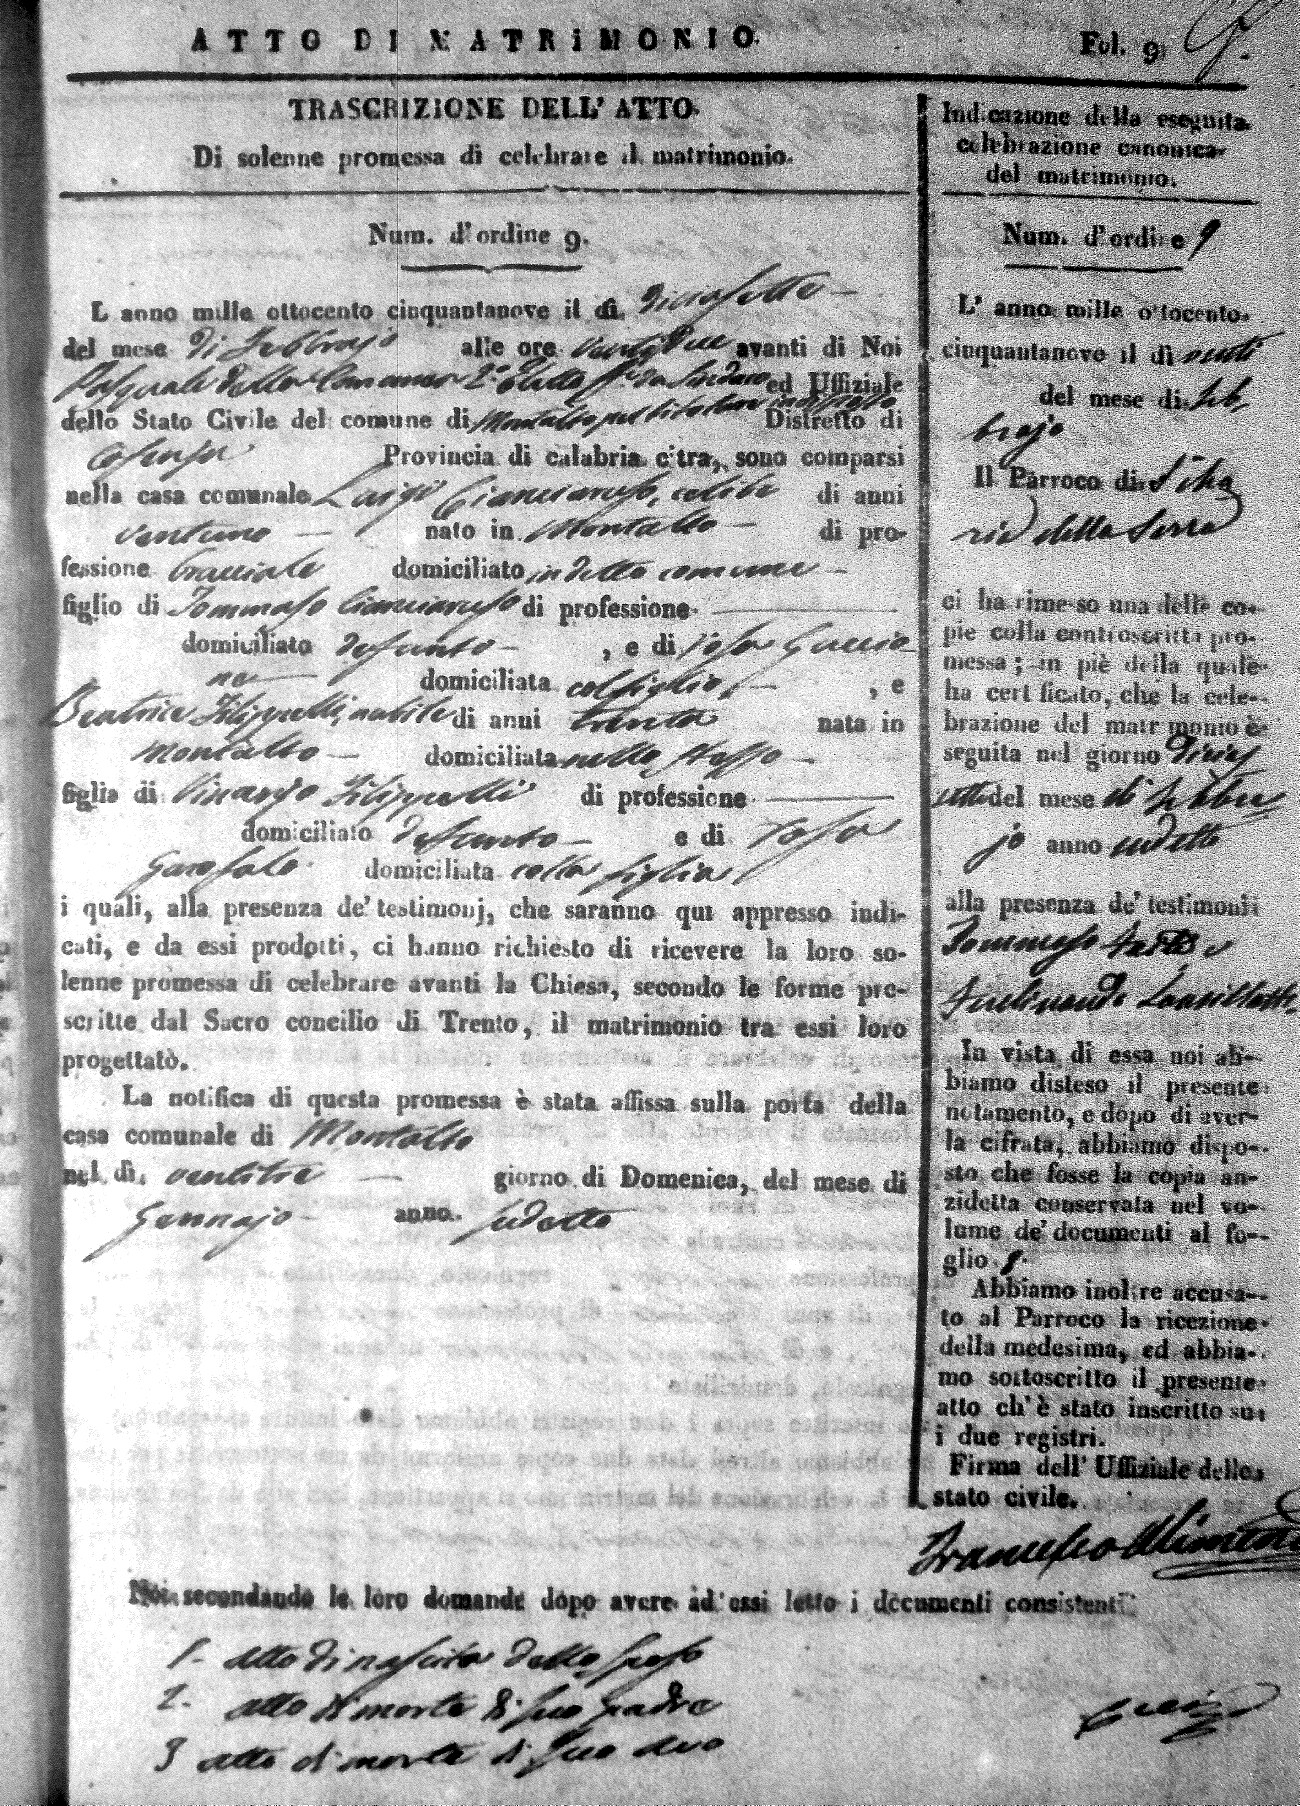 ATTO DI MATRIMONIO.
Fol. 9
TRASCRIZIONE DELL' ATTO
Di solenne promessa di celebrare il matrimonio.
Num. d'ordine 9.
L anno mille ottocento cinquantanove il dì diciasette
del mese di Febbrajo alle ore ventidue avanti di Noi
Pasquale della 2° Eletto ff. da Sindaco ed Uffiziale
dello Stato Civile del comune di Montalto Distretto di
Cosenza Provincia di calabria citra, sono comparsi
nella casa comunale Luigi Cianciaruso, celibe di anni
ventuno nato in Montalto di pro-
fessione bracciale domiciliato in detto comune
figlio di Tommaso Cianciaruso di professione
domiciliato defunto , e di Rosa Guccio
ne domiciliata col figlio, , e
Beatrice Filippelli, nubile di anni trenta nata in
Montalto domiciliata nello stesso
figlia di Vincenzo Filippelli di professione
domiciliato defunto e di Rosa
Garofalo domiciliata colla figlia
i quali, alla presenza de' testimonj, che saranno qui appresso indi-
cati, e da essi prodotti, ci hanno richiesto di ricevere la loro so-
lenne promessa di celebrare avanti la Chiesa, secondo le forme pre-
scritte dal Sacro concilio di Trento, il matrimonio tra essi loro
progettato.
La notifica di questa promessa è stata affissa sulla porta della
casa comunale di Montalto
nel dì. ventitre giorno di Domenica, del mese di
Gennajo anno. sudetto
Indicazione della eseguita
celebrazione canonica
del matrimonio.
Num. d'ordine 9
L' anno mille ottocento
cinquantanove il dì venti
del mese di Feb,
brajo
Il Parroco di
della Serra
ci ha rimesso una delle co-
pie colla controscritta pro-
messa; in piè della quale
ha certificato, che la cele-
brazione del matrimonio è
seguita nel giorno dicias
sette del mese di Febbra
jo anno sudetto
alla presenza de' testimonii
Tommaso e
Ferdinando
In vista di essa noi ab-
biamo disteso il presente
notamento, e dopo di aver-
la cifrata, abbiamo dispo-
sto che fosse la copia an-
zidetta conservata nel vo-
lume de' documenti al fo-
glio
Abbiamo inoltre accusa-
to al Parroco la ricezione
della medesima, ed abbia-
mo sottoscritto il presente
atto ch'è stato inscritto su
i due registri.
Firma dell' Uffiziale dello
stato civile.
Francesco
Noi secondando le loro domande dopo avere ad essi letto i documenti consistenti
1- atto di nascita dello sposo
2- atto di morte di suo padre
3 atto di morte di suo avo